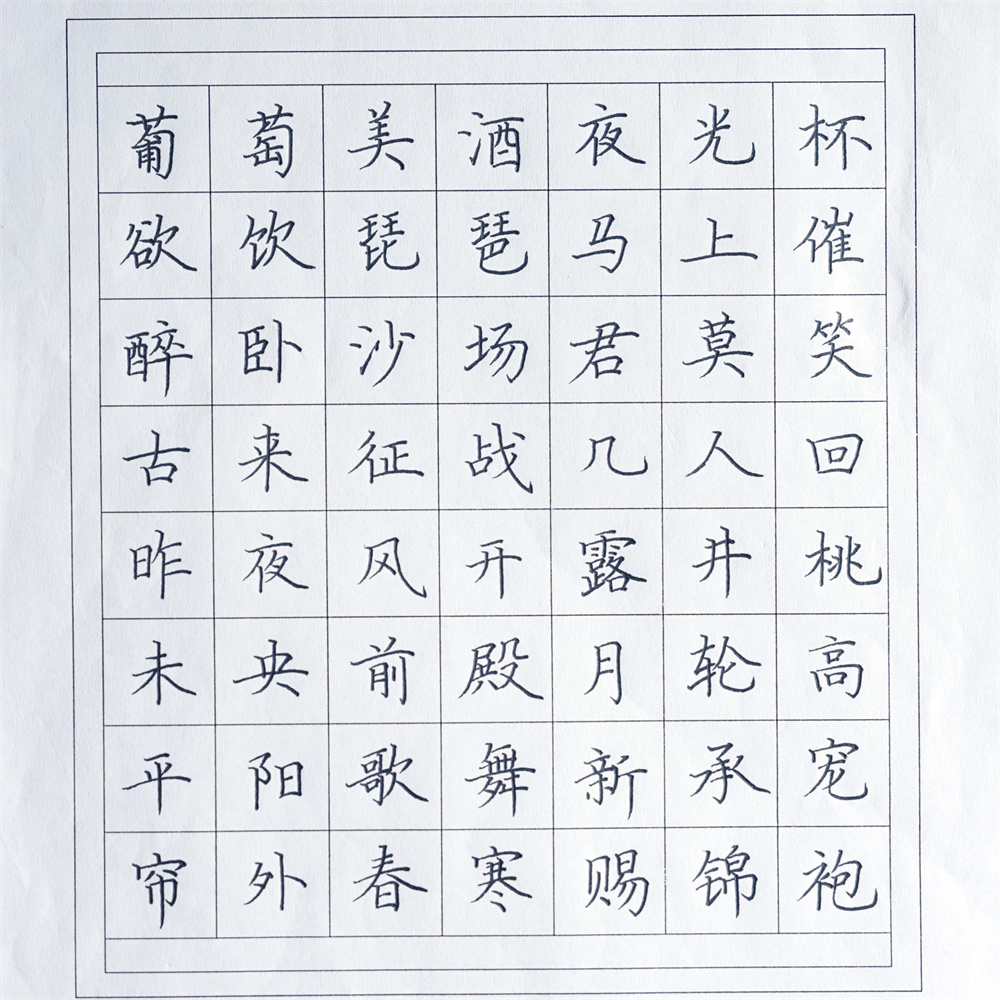 葡萄美酒夜光杯
欲饮琵琶马上催
醉卧沙场君莫笑
古来征战几人回
昨夜风开露井桃
未央前殿月轮高
平阳歌舞新承宠
帘外春寒赐锦袍